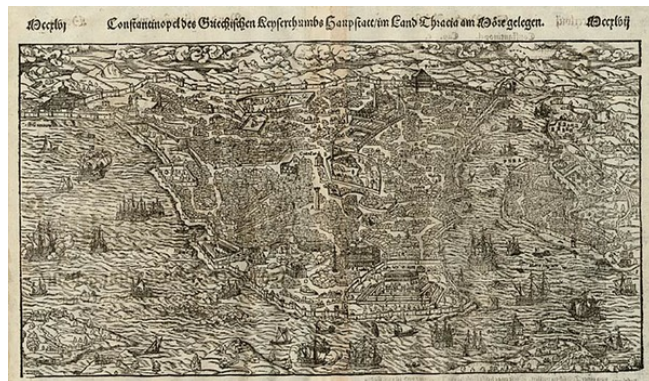 Mccxlvi Constantinopel des Griechischen Keyserthumbs Hauptstatt / im Land Thracia am Möre gelegen. Mccxlvij